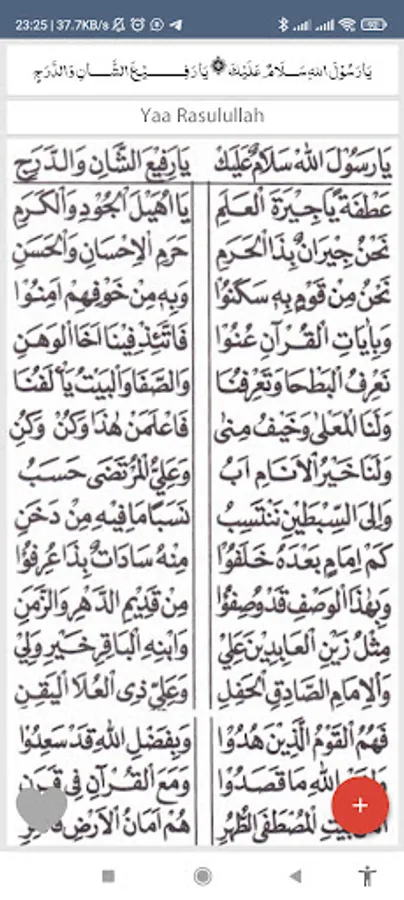 23:25 | 37.7KB/s
92
يَارَسُوْلَ اللهِ سَلَامٌ عَلَيْكَ ۞ يَارَفِيْعَ الشَّانِ وَالدَّرَجِ
Yaa Rasulullah
يَارَسُوْلَ اللهْ سَلَامٌ عَلَيْكْ يَارَفِيْعَ الشَّانِ وَالدَّرَجِ
عَطْفَةً يَاجِيْرَةَ الْعَلَمِ يَا أُهَيْلَ الْجُوْدِ وَالْكَرَمِ
نَحْنُ جِيْرَانٌ بِذَا الْحَرَمِ حَرَمِ الْاِحْسَانِ وَالْحَسَنِ
نَحْنُ مِنْ قَوْمٍ بِهِ سَكَنُوْا وَبِهِ مِنْ خَوْفِهِمْ اَمِنُوْا
وَبِاٰيَاتِ الْقُرْآنِ عُنُوْا فَاتَّئِدْ فِيْنَا اَخَا الْوَهَنِ
نَعْرِفُ الْبَطْحَا وَتَعْرِفُنَا وَالصَّفَا وَالْبَيْتُ يَأْلَفُنَا
وَلَنَا الْمَعْلَى وَخَيْفُ مِنَى فَاعْلَمَنْ هٰذَا وَكُنْ وَكُنِ
وَلَنَا خَيْرُ الْاَنَامِ اَبُ وَعَلِيُّ الْمُرْتَضَى حَسَبُ
وَاِلَى السِّبْطَيْنِ نَنْتَسِبُ نَسَبًا مَا فِيْهِ مِنْ دَخَنِ
كَمْ اِمَامٍ بَعْدَهُ خَلَفُوْا مِنْهُ سَادَاتٌ بِذَا عُرِفُوْا
وَبِهٰذَا الْوَصْفِ قَدْ وُصِفُوْا مِنْ قَدِيْمِ الدَّهْرِ وَالزَّمَنِ
مِثْلُ زَيْنِ الْعَابِدِيْنَ عَلِيْ وَابْنِهِ الْبَاقِرِ خَيْرِ وَلِيْ
وَالْاِمَامِ الصَّادِقِ الْحَفِلِ وَعَلِيٍّ ذِى الْعُلَا الْيَقِنِ
فَهُمُ الْقَوْمُ الَّذِيْنَ هُدُوْا وَبِفَضْلِ اللهِ قَدْ سَعِدُوْا
اللهِ مَا قَصَدُوْا وَمَعَ الْقُرْآنِ فِى قَرَنِ
بَيْتِ الْمُصْطَفَى الطُّهُرِ هُمْ اَمَانُ الْاَرْضِ